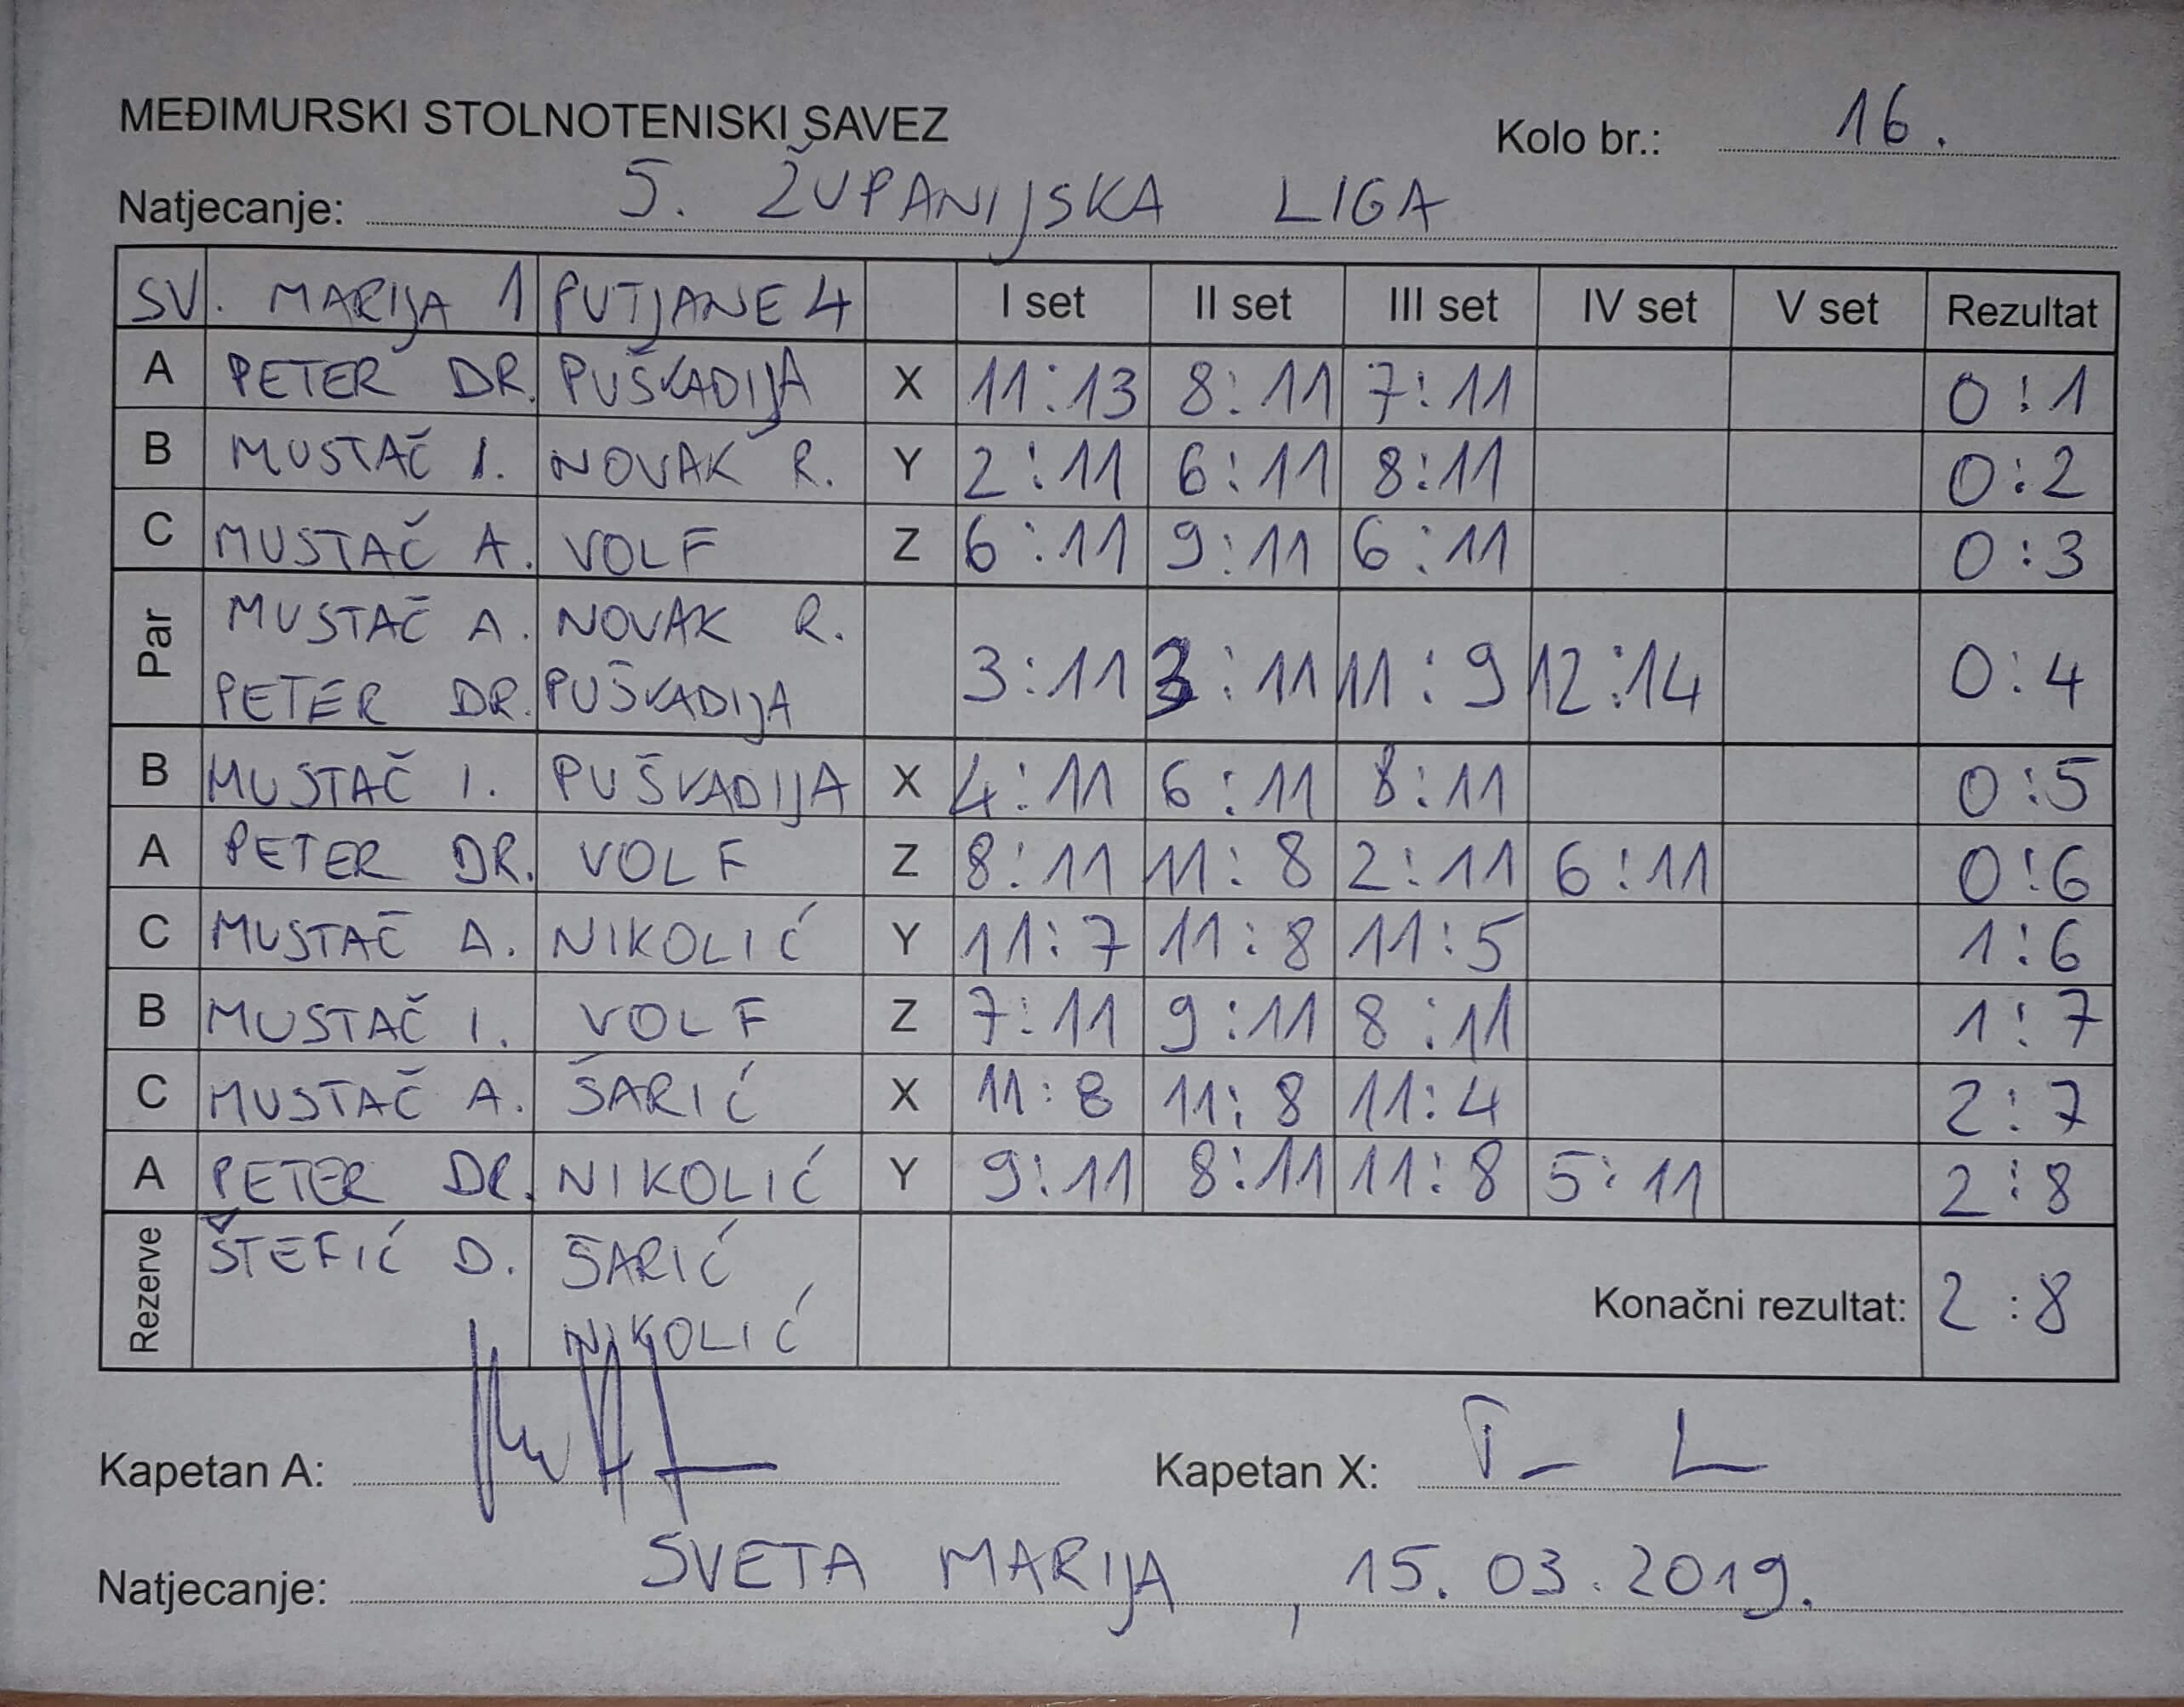 MEĐIMURSKI STOLNOTENISKI SAVEZ
Kolo br.: 16.
Natjecanje: 5. ŽUPANIJSKA LIGA
SV. MARIJA 1 PUTJANE 4 I set II set III set IV set V set Rezultat
A PETER DR. PUŠKADIJA X 11:13 8:11 7:11 0:1
B MUSTAČ I. NOVAK R. Y 2:11 6:11 8:11 0:2
C MUSTAČ A. VOLF Z 6:11 9:11 6:11 0:3
Par MUSTAČ A. NOVAK R.
PETER DR. PUŠKADIJA 3:11 3:11 11:9 12:14 0:4
B MUSTAČ I. PUŠKADIJA X 4:11 6:11 8:11 0:5
A PETER DR. VOLF Z 8:11 11:8 2:11 6:11 0:6
C MUSTAČ A. NIKOLIĆ Y 11:7 11:8 11:5 1:6
B MUSTAČ I. VOLF Z 7:11 9:11 8:11 1:7
C MUSTAČ A. ŠARIĆ X 11:8 11:8 11:4 2:7
A PETER DR. NIKOLIĆ Y 9:11 8:11 11:8 5:11 2:8
Rezerve ŠTEFIĆ D. ŠARIĆ
NIKOLIĆ
Konačni rezultat: 2:8
Kapetan A: Kapetan X:
Natjecanje: SVETA MARIJA, 15.03.2019.